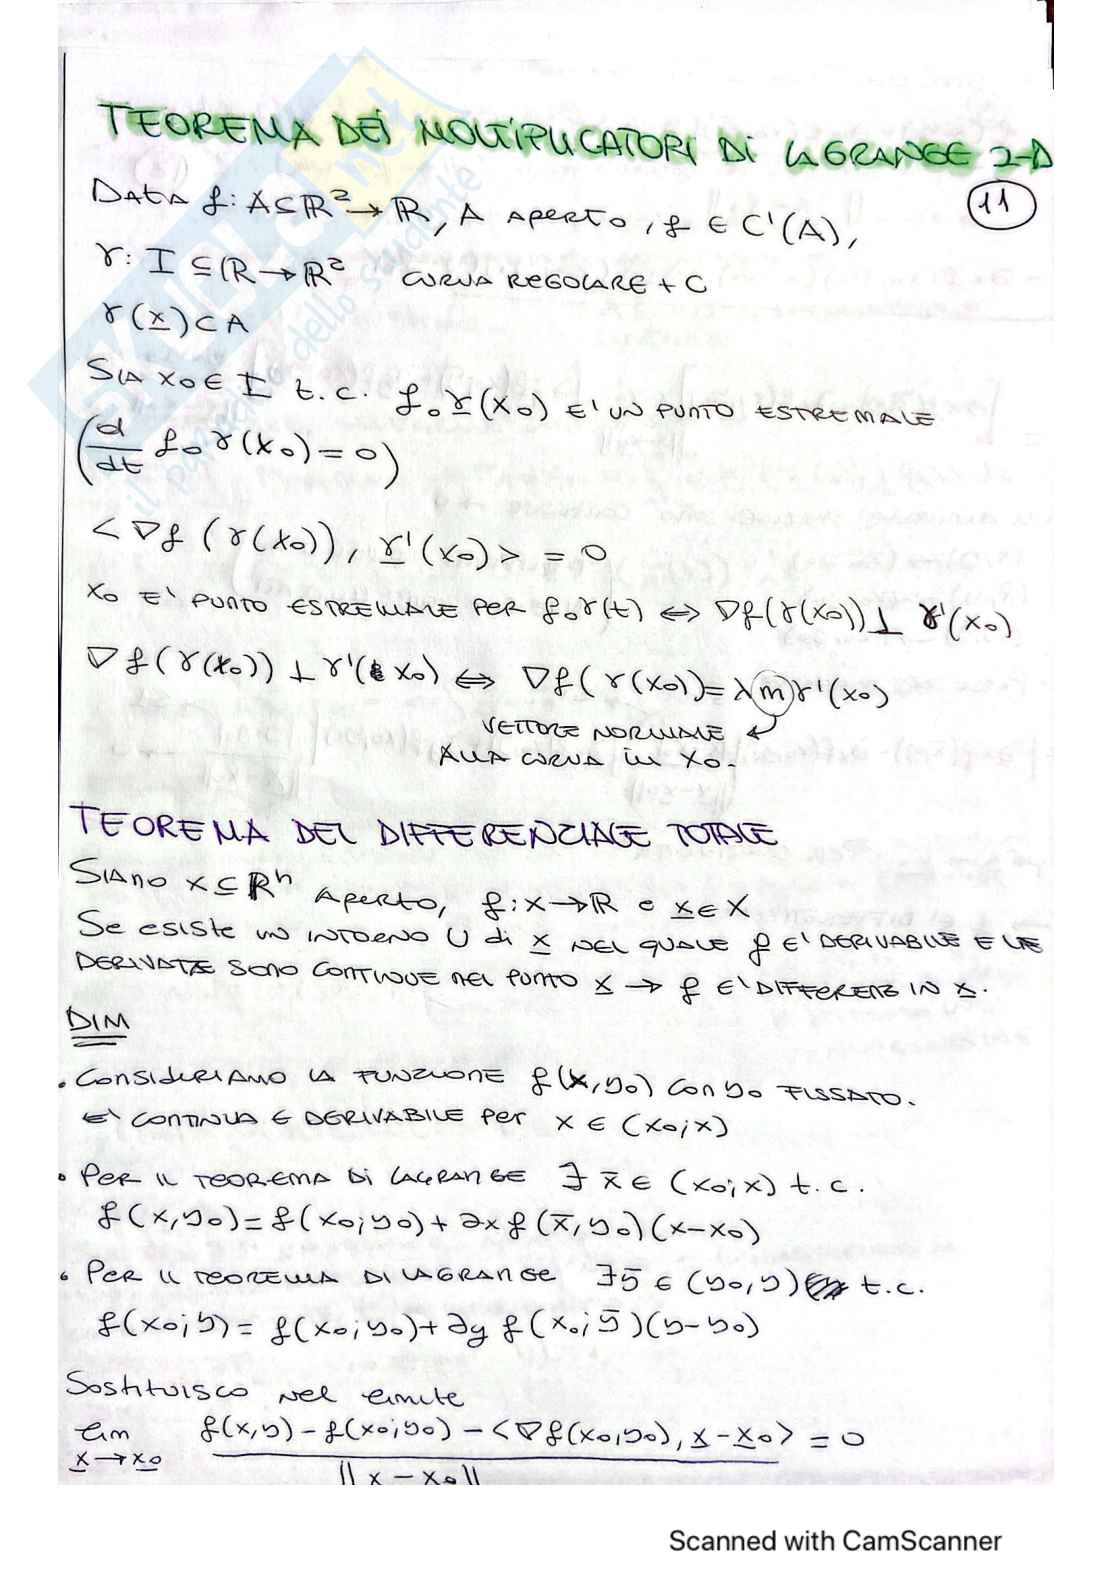 TEOREMA DEI MOLTIPLICATORI DI LAGRANGE 2-D
11
DATA f: A⊆ℝ²→ℝ, A APERTO, f ∈ C'(A),
γ: I ⊆ ℝ → ℝ² CURVA REGOLARE + C
γ(x) ⊂ A
SIA x₀ ∈ I t.c. f∘γ(x₀) E' UN PUNTO ESTREMALE
(d/dt f∘γ(x₀) = 0)
< ∇f (γ(x₀)), γ'(x₀) > = 0
x₀ E' PUNTO ESTREMALE PER f∘γ(t) ⇔ ∇f(γ(x₀)) ⊥ γ'(x₀)
∇f(γ(x₀)) ⊥ γ'(x₀) ⇔ ∇f(γ(x₀)) = λ m γ'(x₀)
VETTORE NORMALE
ALLA CURVA in x₀.
TEOREMA DEL DIFFERENZIALE TOTALE
SIANO X ⊆ ℝⁿ APERTO, f: X→ℝ e x ∈ X
Se esiste un INTORNO U di x NEL QUALE f E' DERIVABILE E LE
DERIVATE SONO CONTINUE NEL PUNTO x → f E' DIFFERENZ IN x.
DIM
• CONSIDERIAMO LA FUNZIONE f(x,y₀) CON y₀ FISSATO.
E' CONTINUA E DERIVABILE PER x ∈ (x₀;x)
• PER IL TEOREMA DI LAGRANGE ∃ x̄ ∈ (x₀;x) t.c.
f(x,y₀) = f(x₀;y₀) + ∂x f(x̄,y₀)(x-x₀)
• PER IL TEOREMA DI LAGRANGE ∃ȳ ∈ (y₀,y) t.c.
f(x₀;y) = f(x₀;y₀) + ∂y f(x₀;ȳ)(y-y₀)
Sostituisco nel limite
lim x→x₀ f(x,y) - f(x₀;y₀) - <∇f(x₀,y₀), x-x₀> / ||x-x₀|| = 0
SKUOLA.net
il paradiso dello studente
Scanned with CamScanner